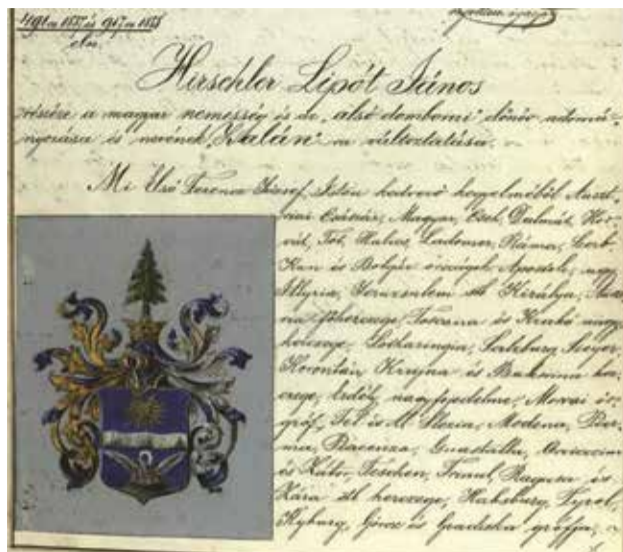 491 en 1887 és 967 en 1888
eln.
Hirschler Lipót János
részére a magyar nemesség és az „alsó dombomi” előnév adomá-
nyozása és nevének „Kalán” ra változtatása.
Mi Első Ferencz József, Isten kedvező kegyelméből Auszt-
riai Császár, Magyar, Cseh, Dalmát, Hor-
vát, Tót, Halics, Ladomér, Ráma, Szerb,
Kun és Bolgár országok Apostoli, nagy
Illyria, Jeruzsálem stb Királya, Auszt-
ria főherczege, Toscana és Krakó nagy-
herczege, Lotharingia, Salzburg, Steyer,
Korontán, Krajna és Bukovina her-
czege, Erdély nagyfejedelme, Morva őr-
gróf, Fel és Al Slezia, Modena, Pár-
ma, Piacenza, Guastalla, Osviecin
és Zátor, Teschen, Friaul, Ragusa és
Zára stb herczege, Habsburg, Tyrol,
Kyburg, Görcz és Gradiska grófja,